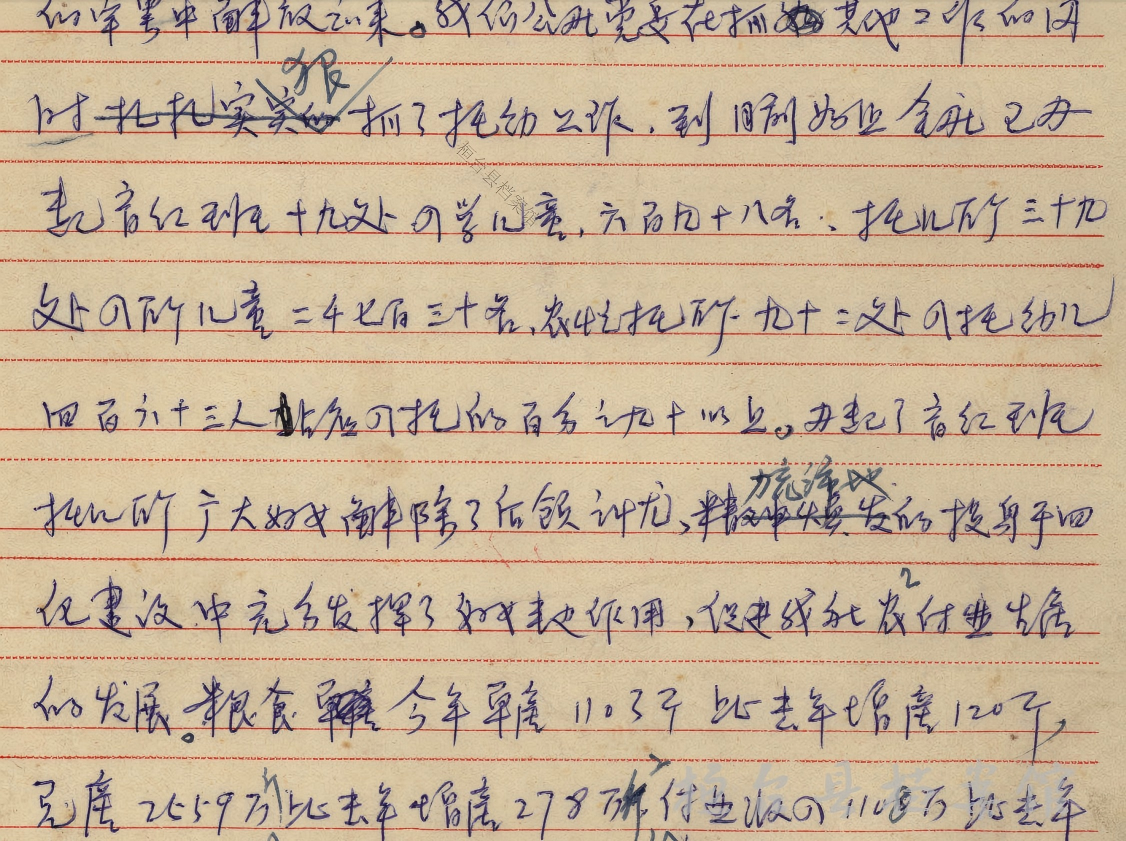 的家务中解放出来。我们公社党委在抓其他工作的同
狠
时扎扎实实的抓了托幼工作，到目前为止全社已办
起育红班十九处入学儿童，六百九十八名，托儿所三十九
处入所儿童二千七百三十名，农忙托所九十二处入托幼儿
四百六十三人占应入托的百分之九十以上。办起了育红班
托儿所广大妇女解除了后顾之忧，精神焕发的投身于四
化建设中充分发挥了妇女半边作用，促进我社农付业生产
的发展。粮食今年单产1103斤比去年增产120斤，
总产2559万比去年增产278万斤付业收入1108万比去年
桓台县档案馆